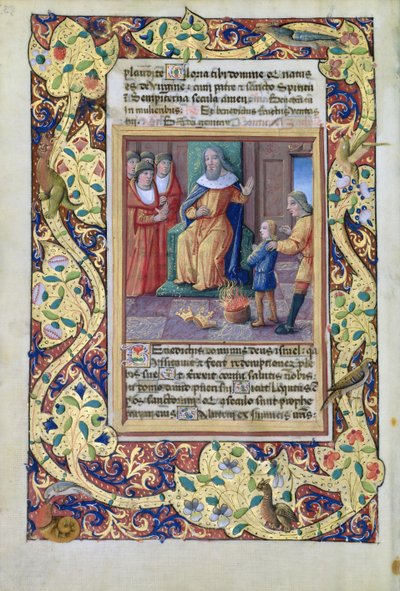 plaudite Gloria tibi domine qui natus
es de virgine : cum patre et sancto spiritu
in sempiterna secula amen
in mulieribus : Et benedictus fructus ventris
tui
Benedictus dominus deus israel : q̃
visitavit et fecit redemptionez ple
bis sue Et erexit cornu salutis nobis
in domo david pueri sui Sicut locutus ē
p os sanctorum q a seculo sunt prophe
tarum eius Salutem ex inimicis nr̄is